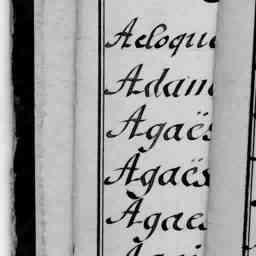 Acloque
Adam
Agaës
Agaës
Agaes